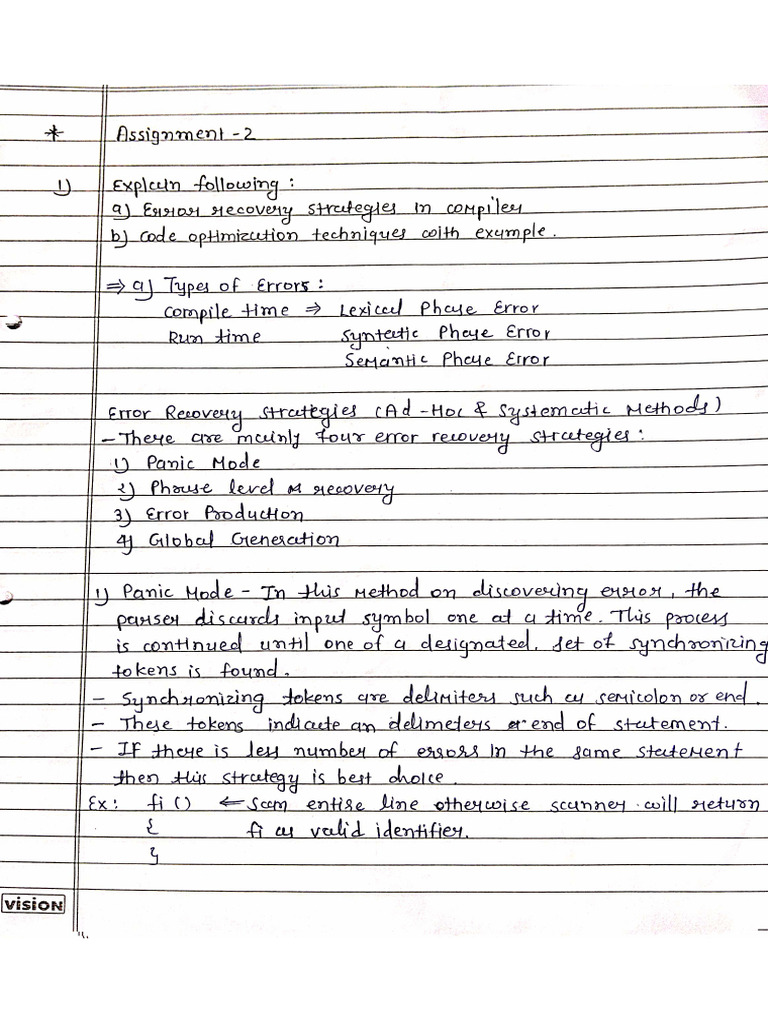 * Assignment - 2
1) Explain following :
a) Error recovery strategies in compiler
b) Code optimization techniques with example.
⇒ a) Types of Errors :
Compile time ⇒ Lexical Phase Error
Run time Syntactic Phase Error
Semantic Phase Error
Error Recovery Strategies (Ad-Hoc & Systematic Methods)
- There are mainly four error recovery strategies :
1) Panic Mode
2) Phrase level recovery
3) Error Production
4) Global Generation
1) Panic Mode - In this method on discovering error, the
parser discards input symbol one at a time. This process
is continued until one of a designated. set of synchronizing
tokens is found.
- Synchronizing tokens are delimiters such as semicolon or end.
- These tokens indicate an delimeters or end of statement.
- If there is less number of errors in the same statement
then this strategy is best choice.
Ex: fi () ← Scan entire line otherwise scanner will return
{ fi as valid identifier.
}
VISION